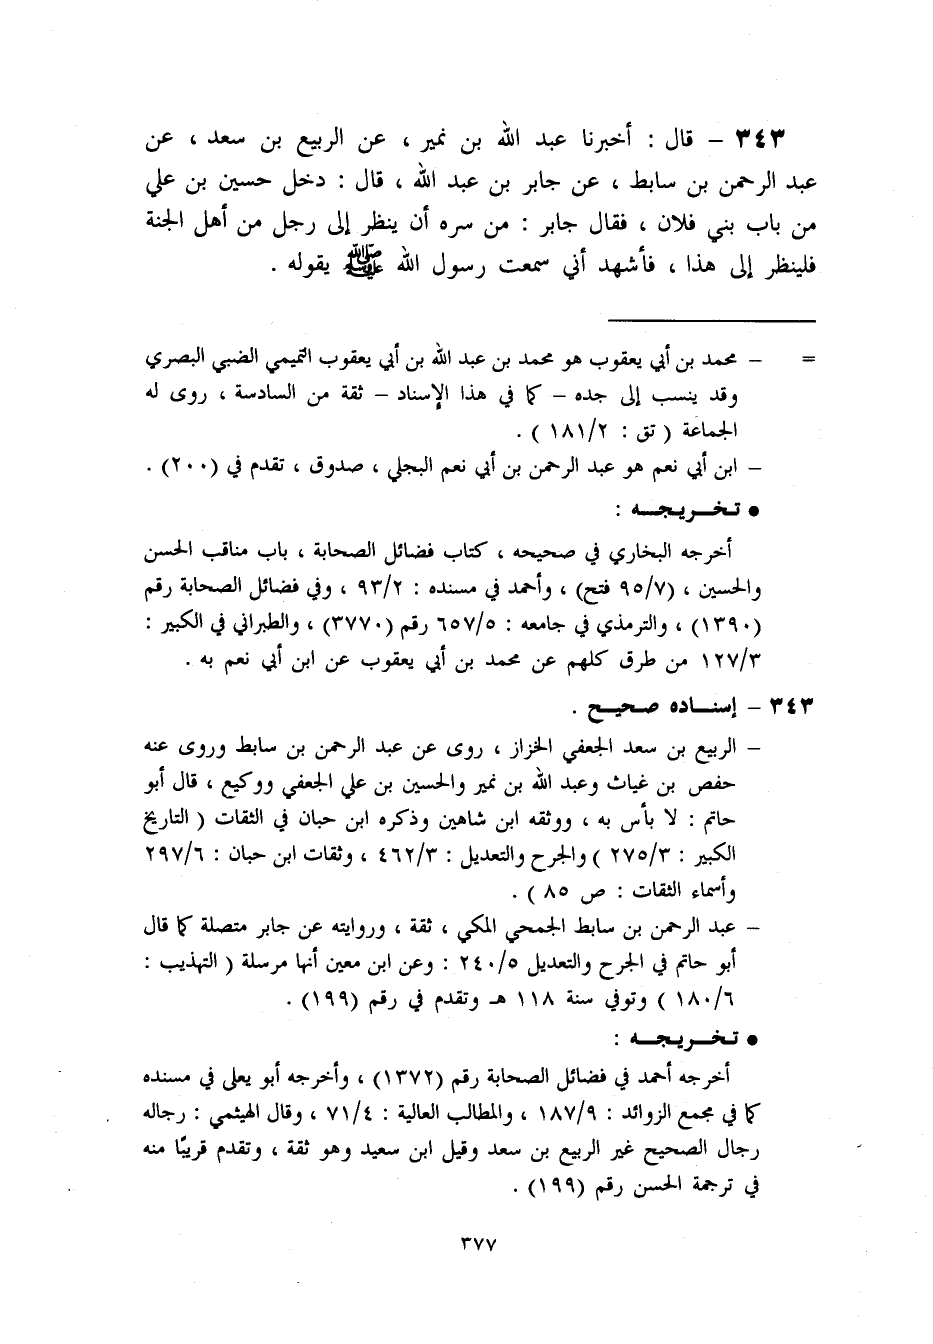 ٣٤٣ – قال : أخبرنا عبد الله بن نمير ، عن الربيع بن سعد ، عن
عبد الرحمن بن سابط ، عن جابر بن عبد الله ، قال : دخل حسين بن علي
من باب بني فلان ، فقال جابر : من سره أن ينظر إلى رجل من أهل الجنة
فلينظر إلى هذا ، فأشهد أني سمعت رسول الله ﷺ يقوله .
= – محمد بن أبي يعقوب هو محمد بن عبد الله بن أبي يعقوب التميمي الضبي البصري
وقد ينسب إلى جده – كما في هذا الإسناد – ثقة من السادسة ، روى له
الجماعة ( تق : ١٨١/٢ ) .
– ابن أبي نعم هو عبد الرحمن بن أبي نعم البجلي ، صدوق ، تقدم في (٢٠٠) .
• تـخـــريـجـــه :
أخرجه البخاري في صحيحه ، كتاب فضائل الصحابة ، باب مناقب الحسن
والحسين ، (٩٥/٧ فتح) ، وأحمد في مسنده : ٩٣/٢ ، وفي فضائل الصحابة رقم
(١٣٩٠) ، والترمذي في جامعه : ٦٥٧/٥ رقم (٣٧٧٠) ، والطبراني في الكبير :
١٢٧/٣ من طرق كلهم عن محمد بن أبي يعقوب عن ابن أبي نعم به .
٣٤٣ – إسنــاده صحيــح .
– الربيع بن سعد الجعفي الخزاز ، روى عن عبد الرحمن بن سابط وروى عنه
حفص بن غياث وعبد الله بن نمير والحسين بن علي الجعفي ووكيع ، قال أبو
حاتم : لا بأس به ، ووثقه ابن شاهين وذكره ابن حبان في الثقات ( التاريخ
الكبير : ٢٧٥/٣ ) والجرح والتعديل : ٤٦٢/٣ ، وثقات ابن حبان : ٢٩٧/٦
وأسماء الثقات : ص ٨٥ ) .
– عبد الرحمن بن سابط الجمحي المكي ، ثقة ، وروايته عن جابر متصلة كما قال
أبو حاتم في الجرح والتعديل ٢٤٠/٥ : وعن ابن معين أنها مرسلة ( التهذيب :
١٨٠/٦ ) وتوفي سنة ١١٨ هـ وتقدم في رقم (١٩٩) .
• تـخـــريـجـــه :
أخرجه أحمد في فضائل الصحابة رقم (١٣٧٢) ، وأخرجه أبو يعلى في مسنده
كما في مجمع الزوائد : ١٨٧/٩ ، والمطالب العالية : ٧١/٤ ، وقال الهيثمي : رجاله
رجال الصحيح غير الربيع بن سعد وقيل ابن سعيد وهو ثقة ، وتقدم قريبًا منه
في ترجمة الحسن رقم (١٩٩) .
٣٧٧